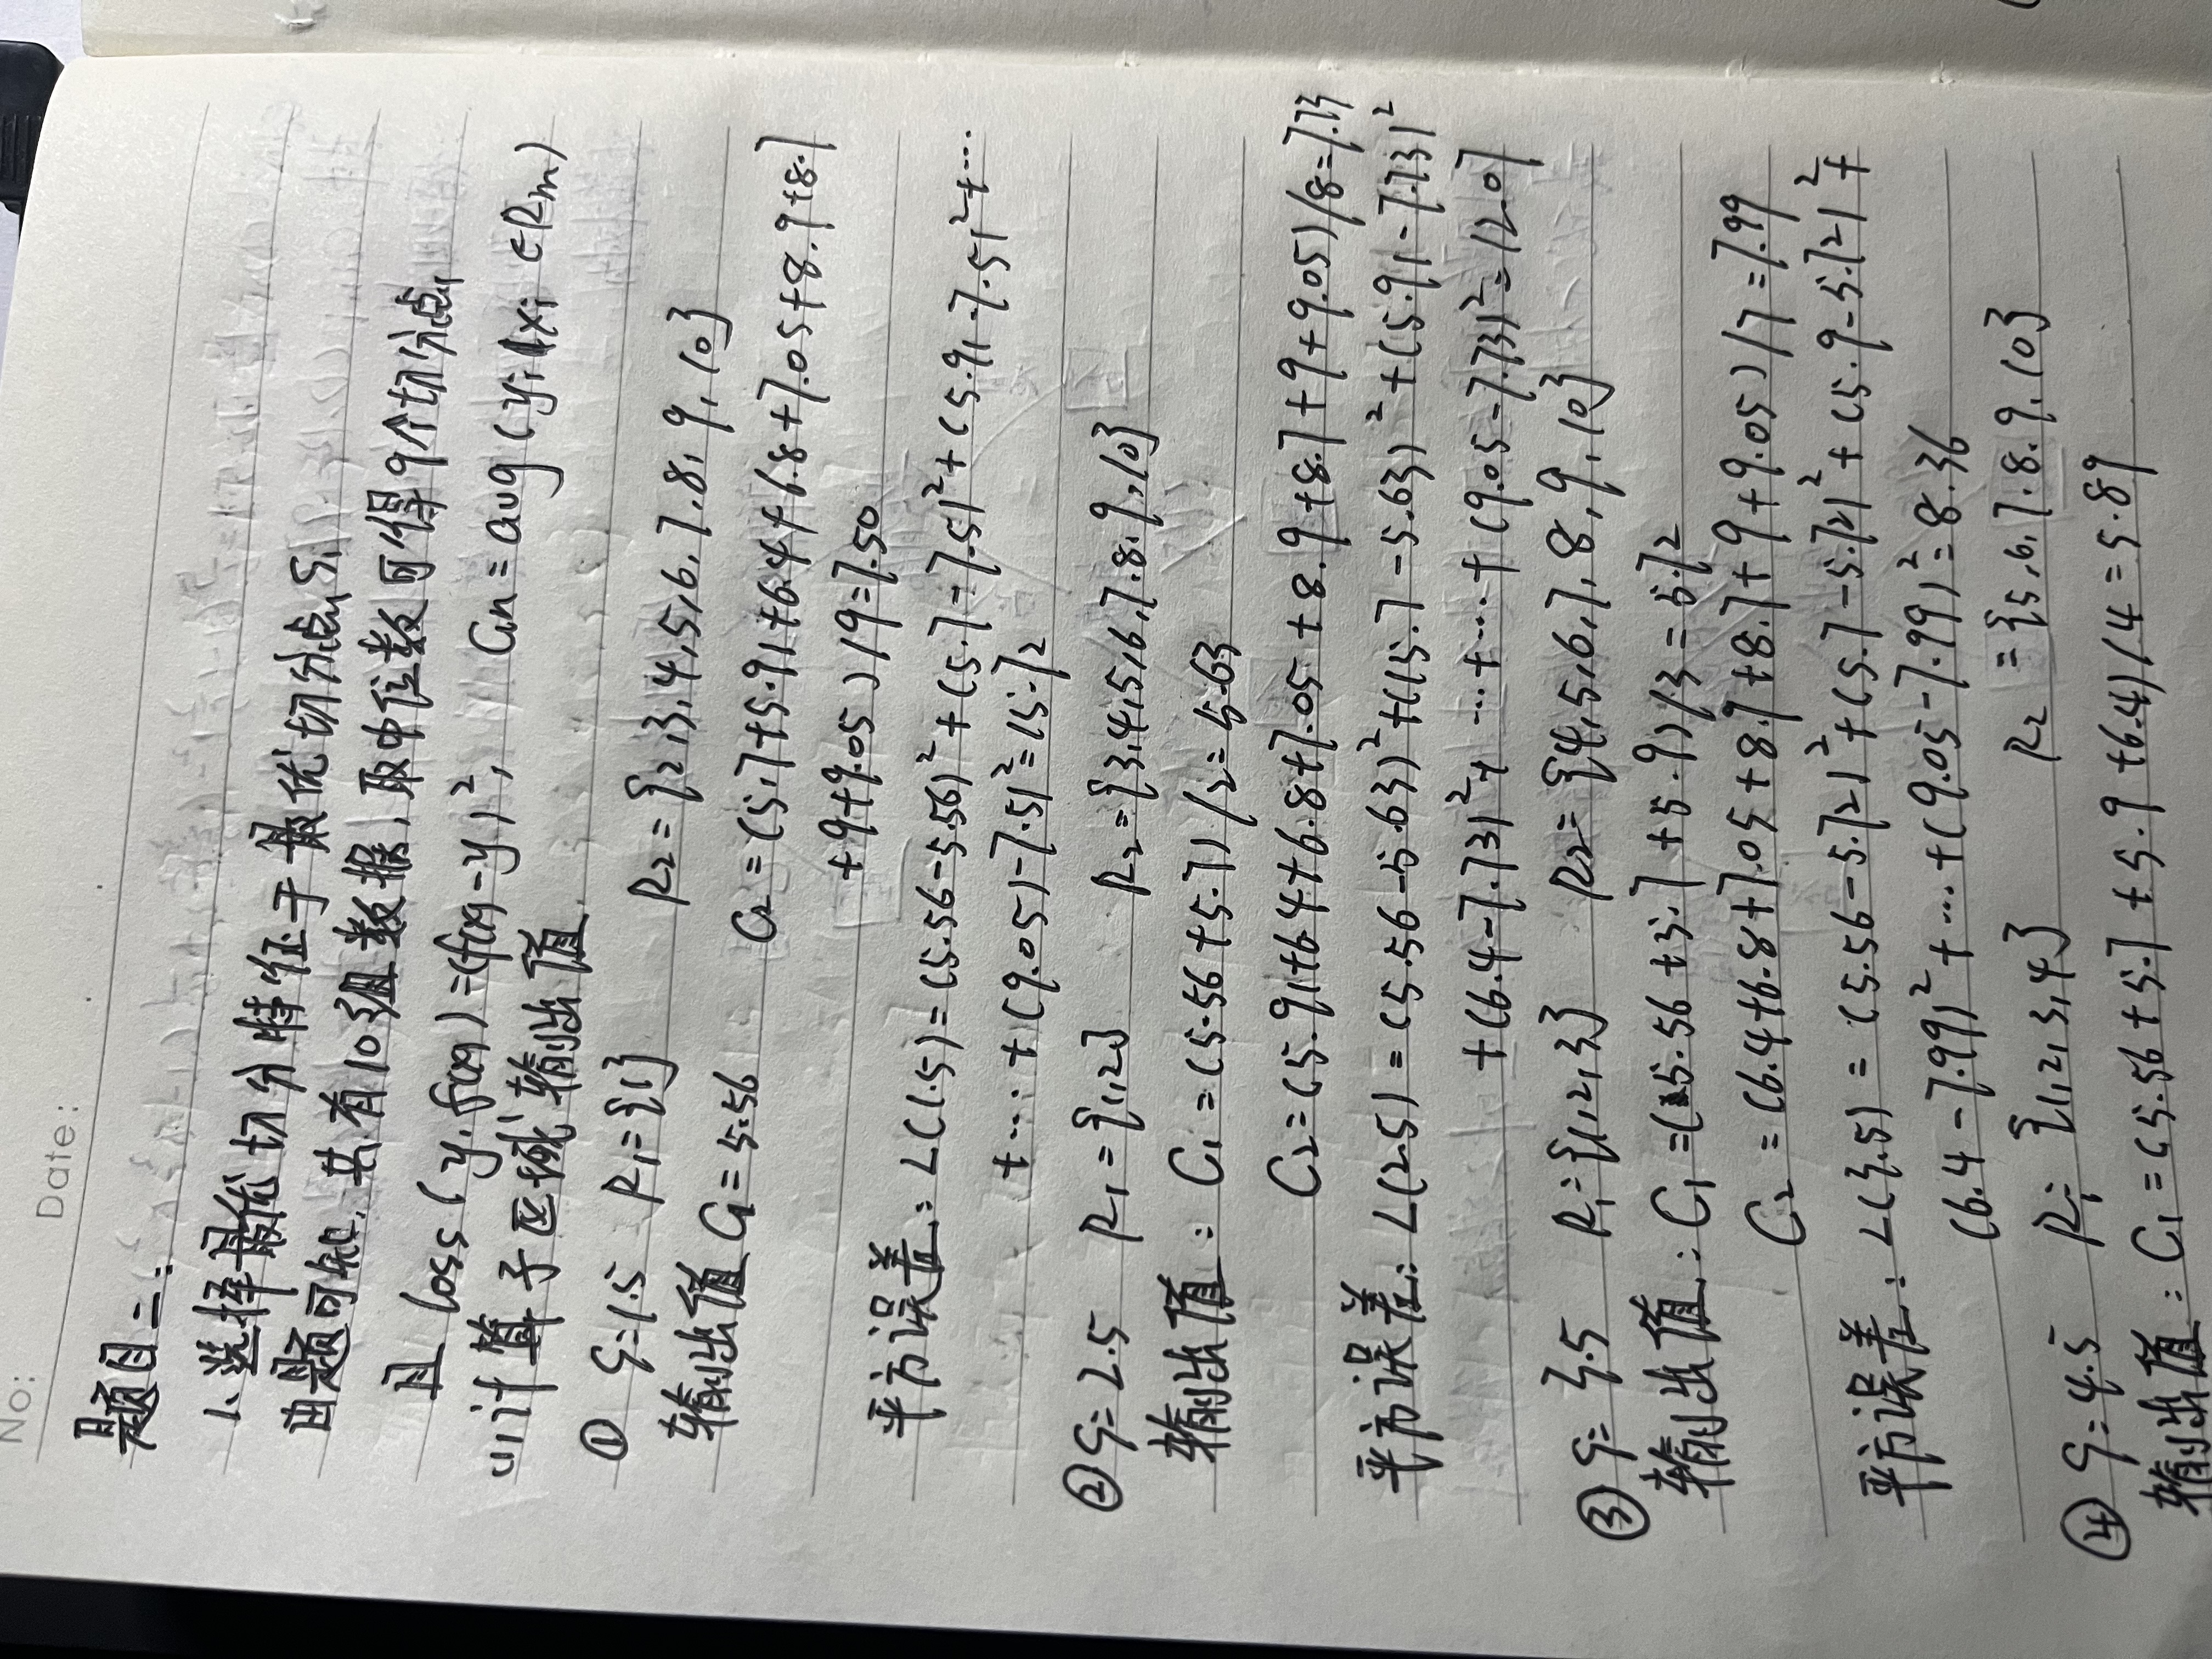 No:
Date:
题目二:
1、选择最优切分特征于最优切分点S,
由题可知,共有10组数据,取中位数可得9个切分点,
且 loss(y,f(x))=(f(x)-y)², Cm=avg(yi|xi∈Rm)
(1)计算子区域输出值
① S=1.5 R₁={1} R₂={2,3,4,5,6,7,8,9,10}
输出值 C₁=5.56 C₂=(5.7+5.91+6.4+6.8+7.05+8.9+8.7
+9+9.05)/9=7.50
平方误差:L(1.5)=(5.56-5.56)²+(5.7-7.5)²+(5.91-7.5)²+…
+…+(9.05)-7.5)²=15.72
② S=2.5 R₁={1,2} R₂={3,4,5,6,7,8,9,10}
输出值:C₁=(5.56+5.7)/2=5.63
C₂=(5.91+6.4+6.8+7.05+8.9+8.7+9+9.05)/8=7.73
平方误差:L(2.5)=(5.56-5.63)²+(5.7-5.63)²+(5.91-7.73)²
+(6.4-7.73)²+…+…+(9.05-7.73)²=12.07
③ S=3.5 R₁={1,2,3} R₂={4,5,6,7,8,9,10}
输出值:C₁=(5.56+5.7+5.9)/3=5.72
C₂=(6.4+6.8+7.05+8.9+8.7+9+9.05)/7=7.99
平方误差:L(3.5)=(5.56-5.72)²+(5.7-5.72)²+(5.9-5.72)²+
(6.4-7.99)²+…+(9.05-7.99)²=8.36
④ S=4.5 R₁={1,2,3,4} R₂={5,6,7,8,9,10}
输出值:C₁=(5.56+5.7+5.9+6.4)/4=5.89